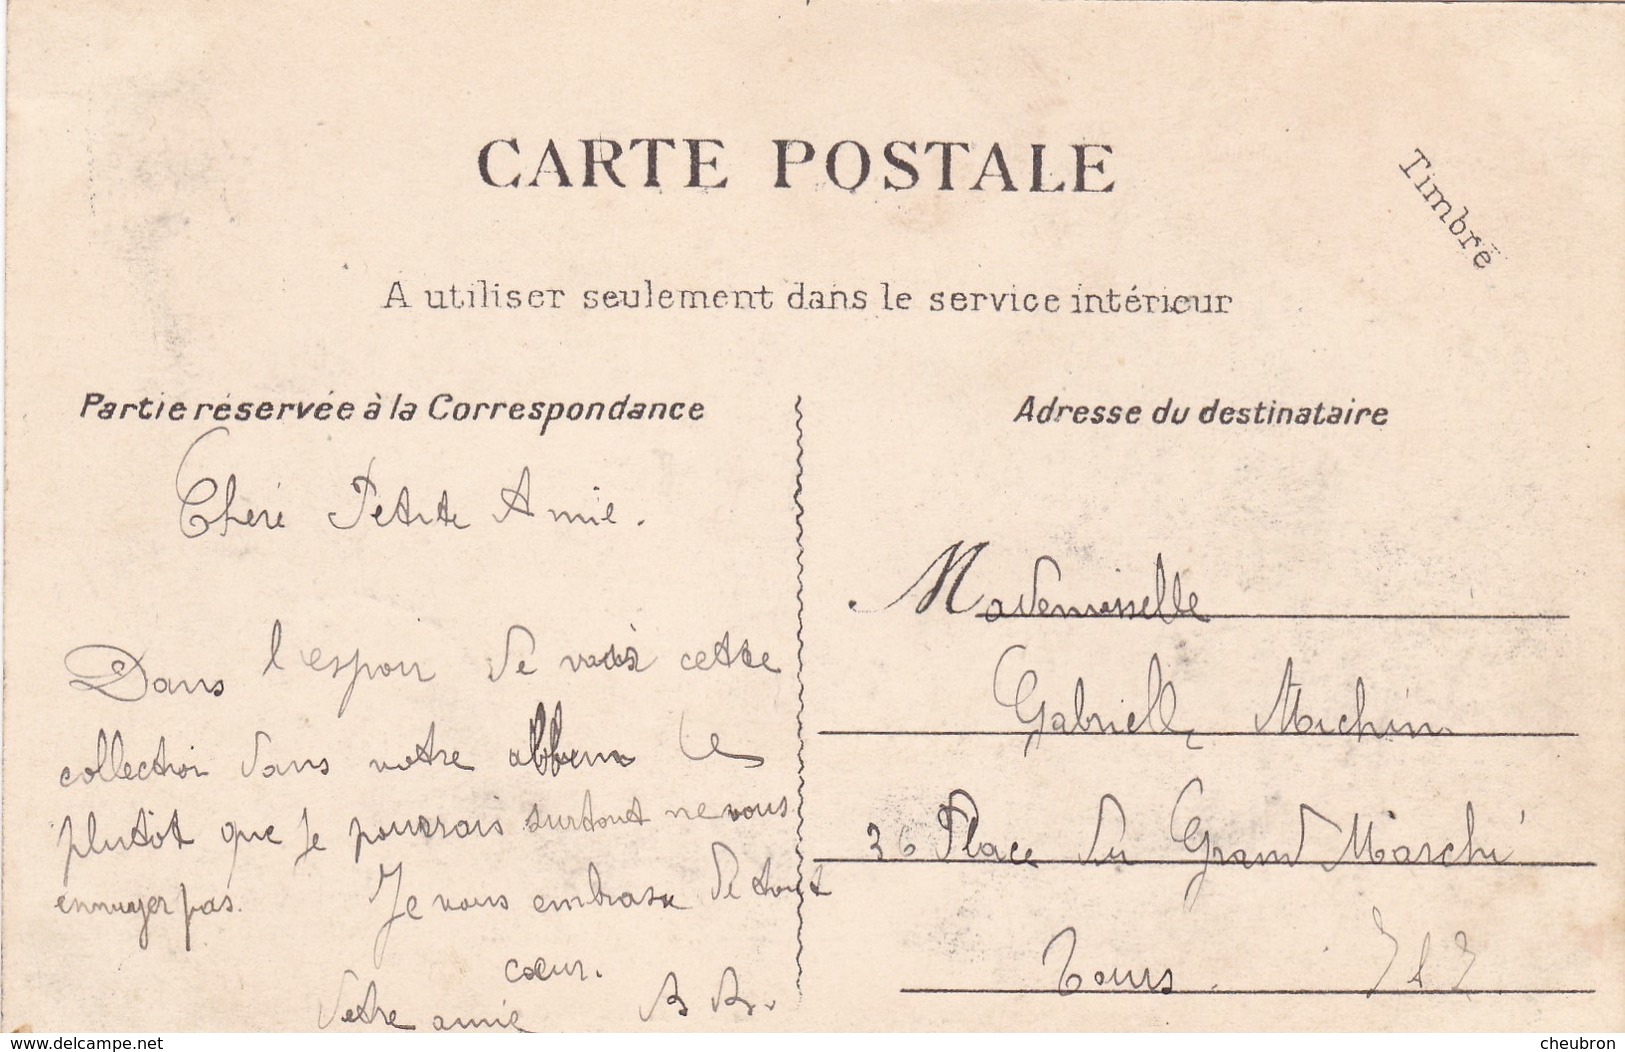 CARTE POSTALE
Timbre
A utiliser seulement dans le service intérieur
Partie réservée à la Correspondance
Adresse du destinataire
Cheré Petite Amie.
Dans l'espoir de voir cette
collection dans votre le
plutôt que je pourrais surtout ne vous
ennuyer pas. Je vous embrasse de tout
cœur.
Votre amie B B.
Mademoiselle
Gabrielle Michin
36 Place du Grand Marché
Tours.
www.delcampe.net
cheubron